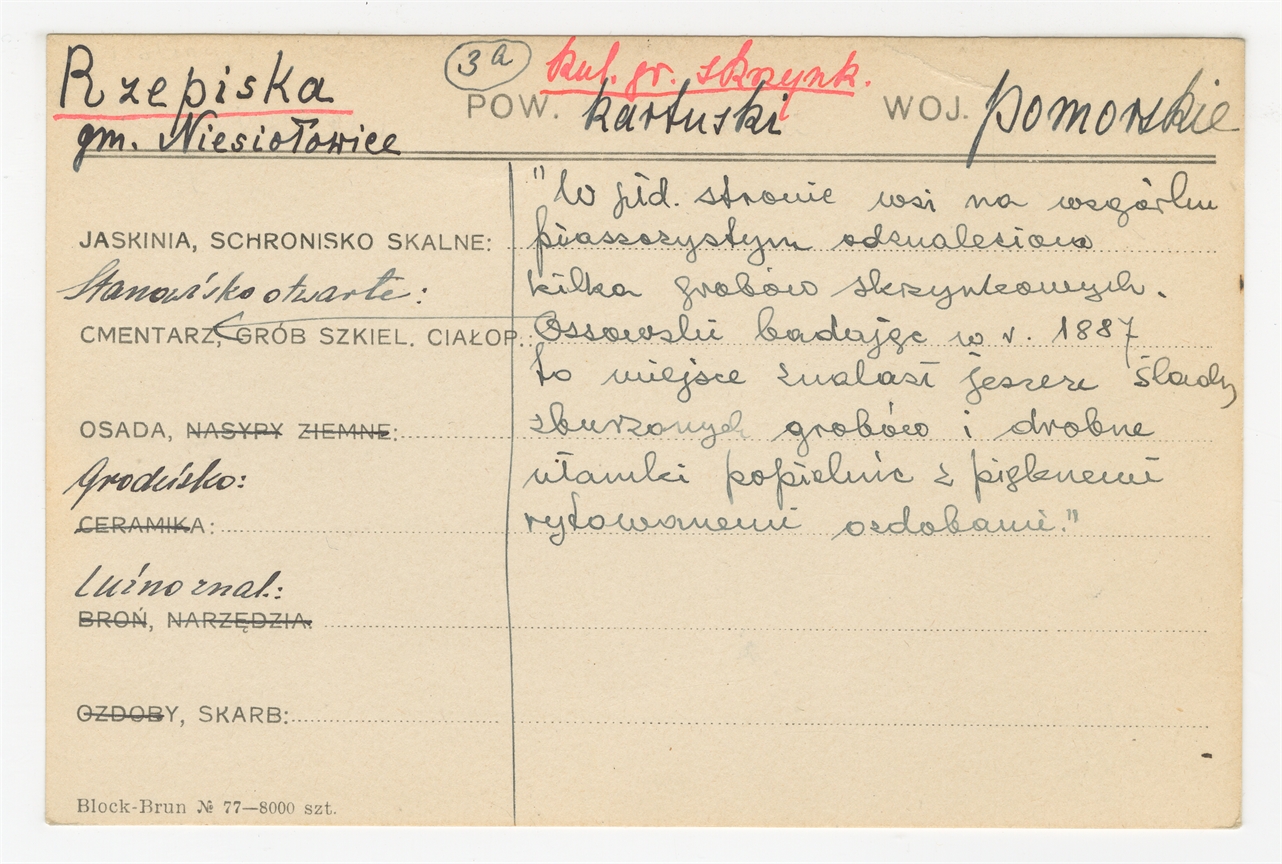 Rzepiska
3a
kul. gr. skrzynk.
gm. Niesiołowice
POW. kartuski
WOJ. pomorskie
JASKINIA, SCHRONISKO SKALNE:
Stanowisko otwarte:
CMENTARZ, GRÓB SZKIEL. CIAŁOP.:
OSADA, NASYPY ZIEMNE:
Grodzisko:
CERAMIKA:
Luźno znal.:
BROŃ, NARZĘDZIA.
OZDOBY, SKARB:
"W płd. stronie wsi na wzgórku
piaszczystym odznaleziono
kilka grobów skrzynkowych.
Ossowski badając w r. 1887
to miejsce znalazł jeszcze ślady
zburzonych grobów i drobne
ułamki popielnic z pięknemi
rytowanemi ozdobami."
Block-Brun № 77—8000 szt.